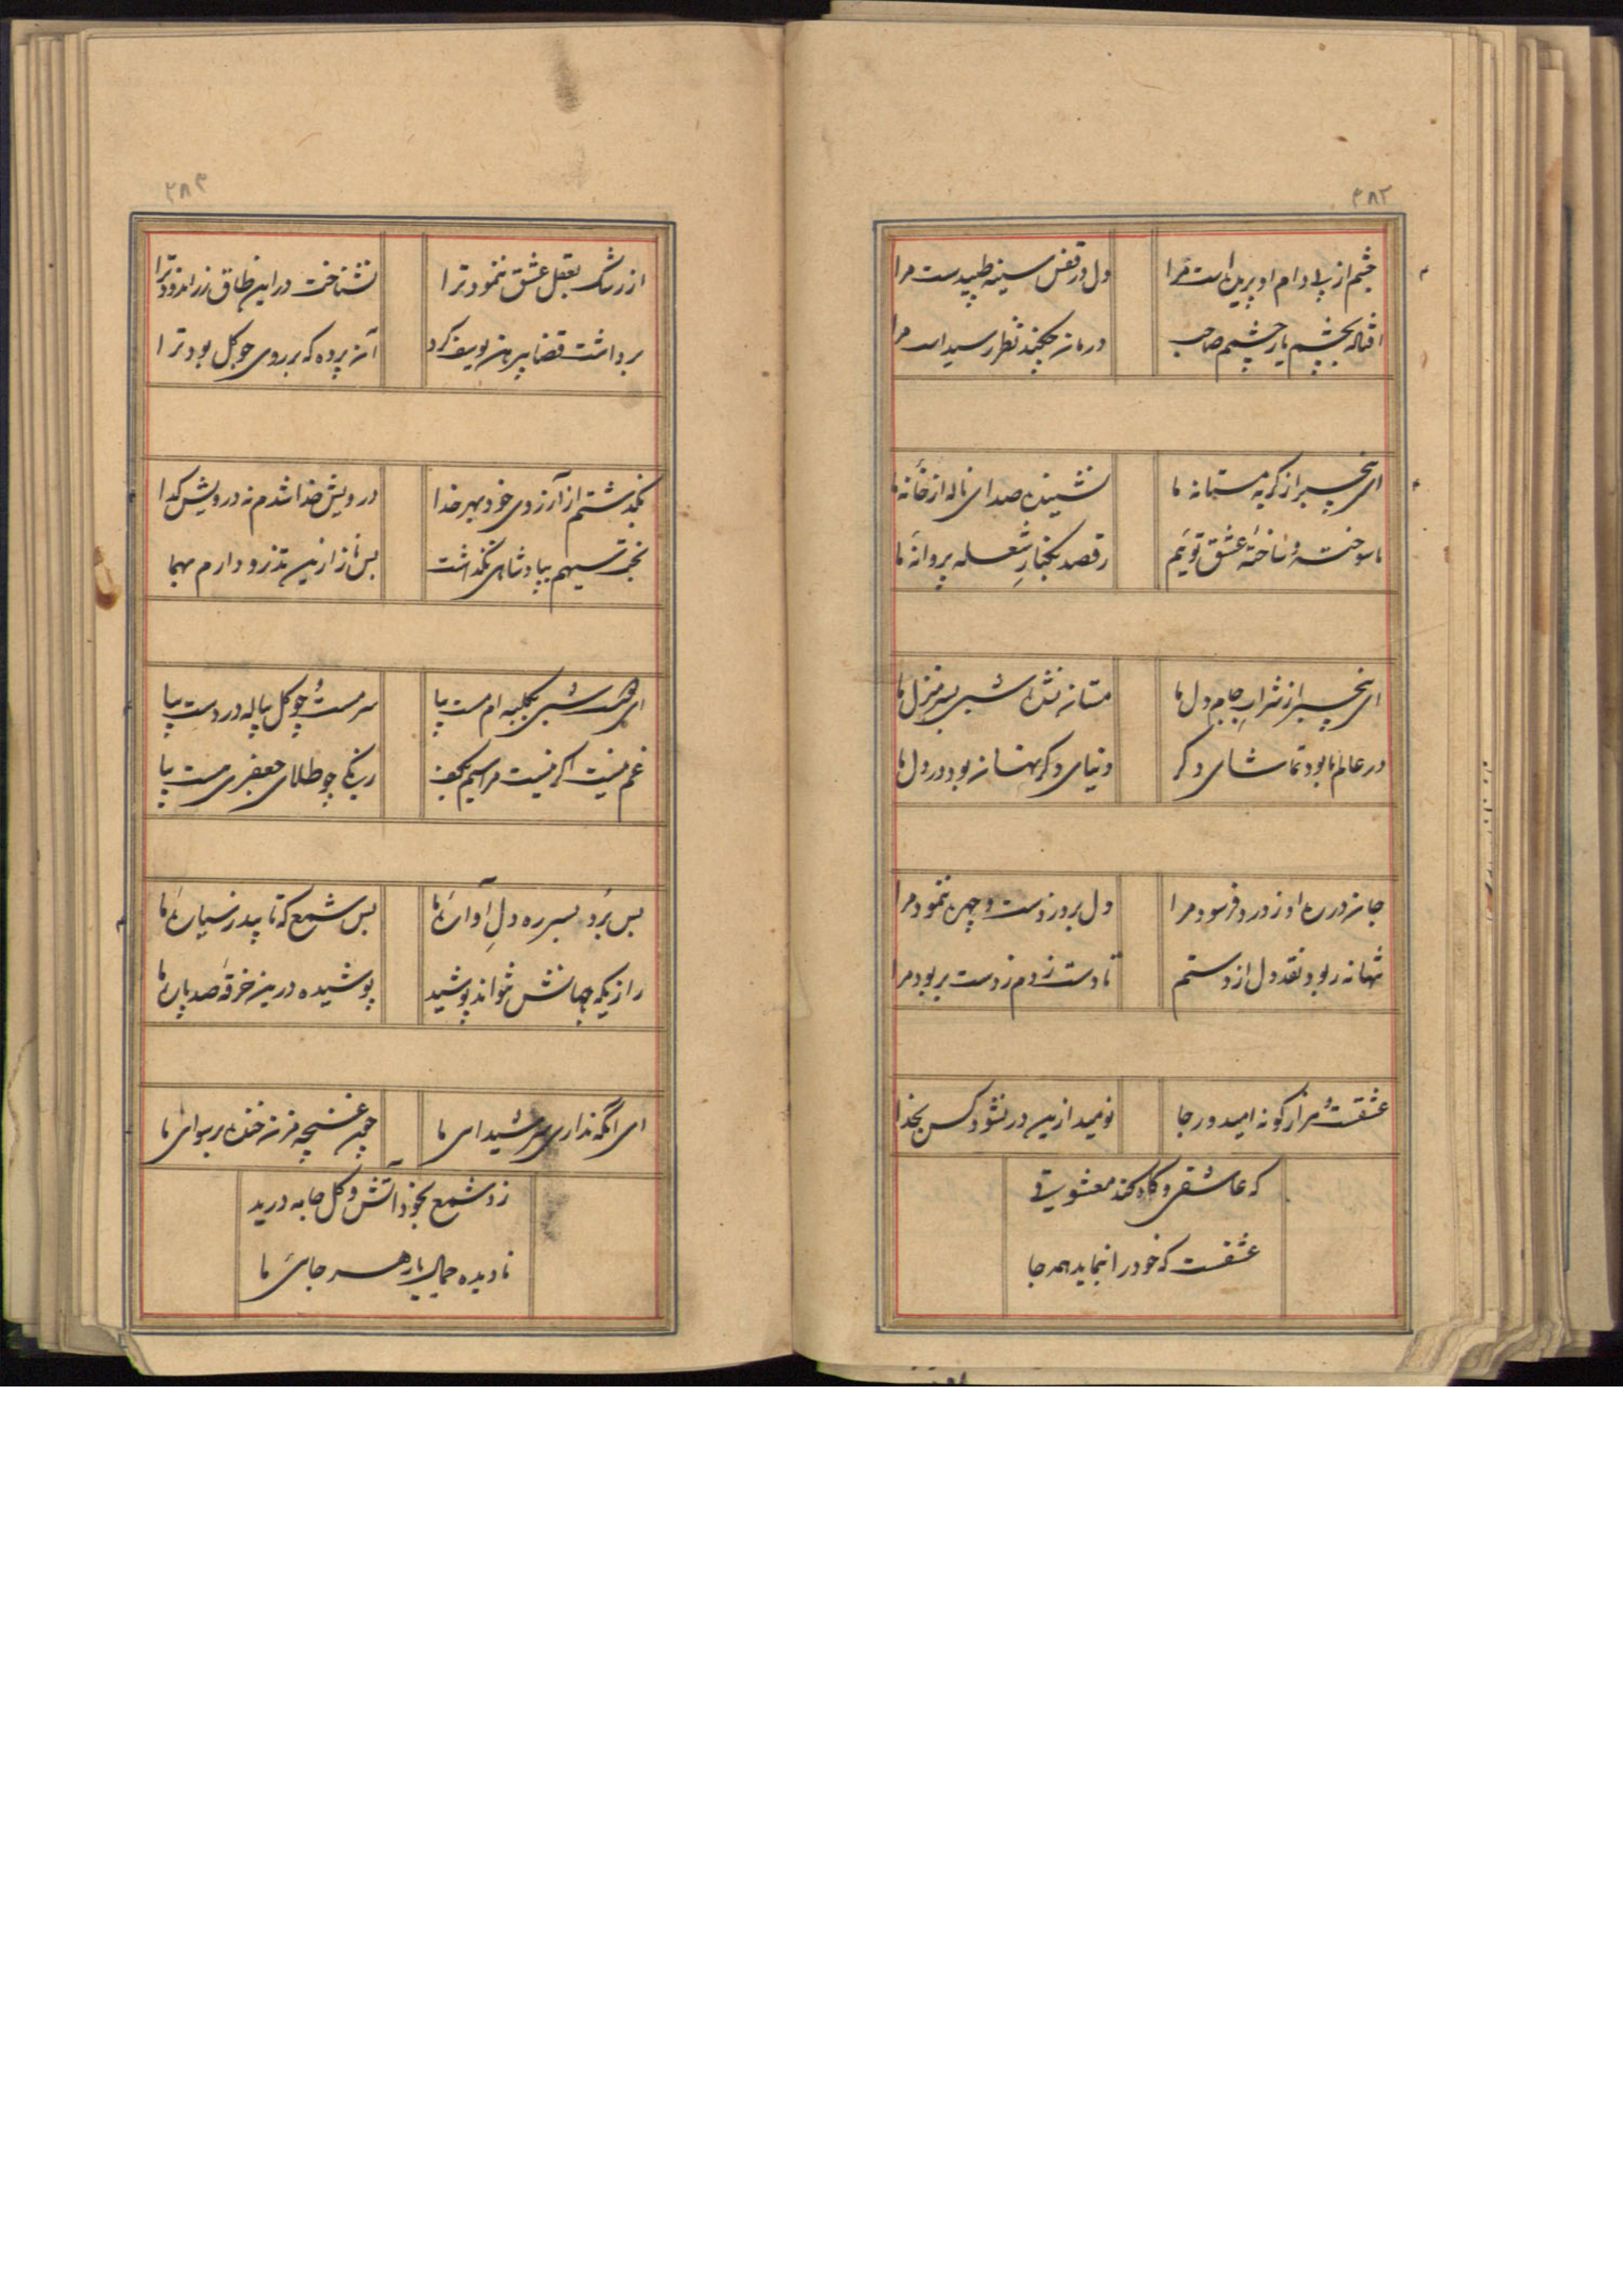 ۳۸۲
چشم از پی دام او پریده است مرا
دل در قفس سینه طپیدست مرا
بچشم یار چشمم صاحب
درمان نظر رسیده است مرا
ای بیخبر از گریه مستانه ما
نشنیده صدای ناله از خانه ما
ما سوخته و ساخته عشق توئیم
رقصد بکنار شعله پروانه ما
ای بیخبر از شراب جام دل ما
مستانه نشد شبی بسر منزل ما
در عالم ما بود تماشای دکر
دنیای دکر نهان بود در دل ما
جان در ره او ز درد فرسود مرا
دل برد ز دست و چهره ننمود مرا
تنها نه ربود نقد دل از دستم
تا دست زدم ز دست بربود مرا
عشقست مرا کونه امید و رجا
نومید ازین در نشود کس بخدا
که عاشقی و کاه کند معشوقی
عشقست که خود را بنماید همه جا
۳۸۳
از رشک بعقل عشق ننمود ترا
نشناخت در این طاق زر اندود ترا
برداشت قضا پیرهن یوسف کرد
آن پرده که بر روی چو کل بود ترا
نکذشتم از آرزوی خود بهر خدا
درویش خدا شدم نه درویش کدا
بپادشاهی نکذاشت
بس ناز ازین دارم
ای شبی بکلبه ام مست بیا
سرمست چو کل پیاله در دست بیا
غم نیست اکر نیست مرا سیم بکف
رنکی چو طلای جعفری هست بیا
بس برد بسر ره دل آواره ما
بس شمع که تابید ز سیاره ما
رازیکه جهانش نتواند پوشید
پوشیده درین خرقه صد پاره ما
ای آنکه نداری سر شیدایی ما
چون غنچه مزن خنده برسوایی ما
زد شمع بخود آتش و کل جامه درید
نادیده جمال یار هر جائی ما